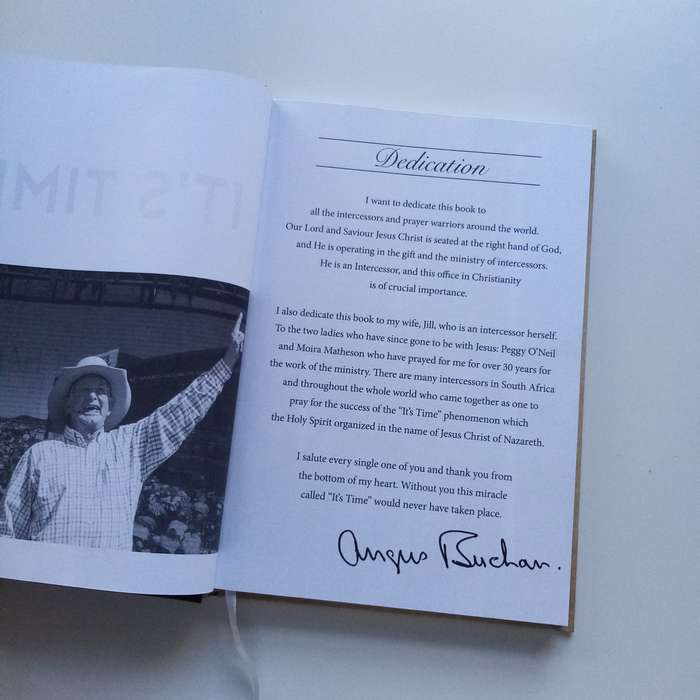 IT'S TIM
Dedication
I want to dedicate this book to
all the intercessors and prayer warriors around the world.
Our Lord and Saviour Jesus Christ is seated at the right hand of God,
and He is operating in the gift and the ministry of intercessors.
He is an Intercessor, and this office in Christianity
is of crucial importance.
I also dedicate this book to my wife, Jill, who is an intercessor herself.
To the two ladies who have since gone to be with Jesus: Peggy O'Neil
and Moira Matheson who have prayed for me for over 30 years for
the work of the ministry. There are many intercessors in South Africa
and throughout the whole world who came together as one to
pray for the success of the “It's Time” phenomenon which
the Holy Spirit organized in the name of Jesus Christ of Nazareth.
I salute every single one of you and thank you from
the bottom of my heart. Without you this miracle
called “It's Time” would never have taken place.
Angus Buchan.